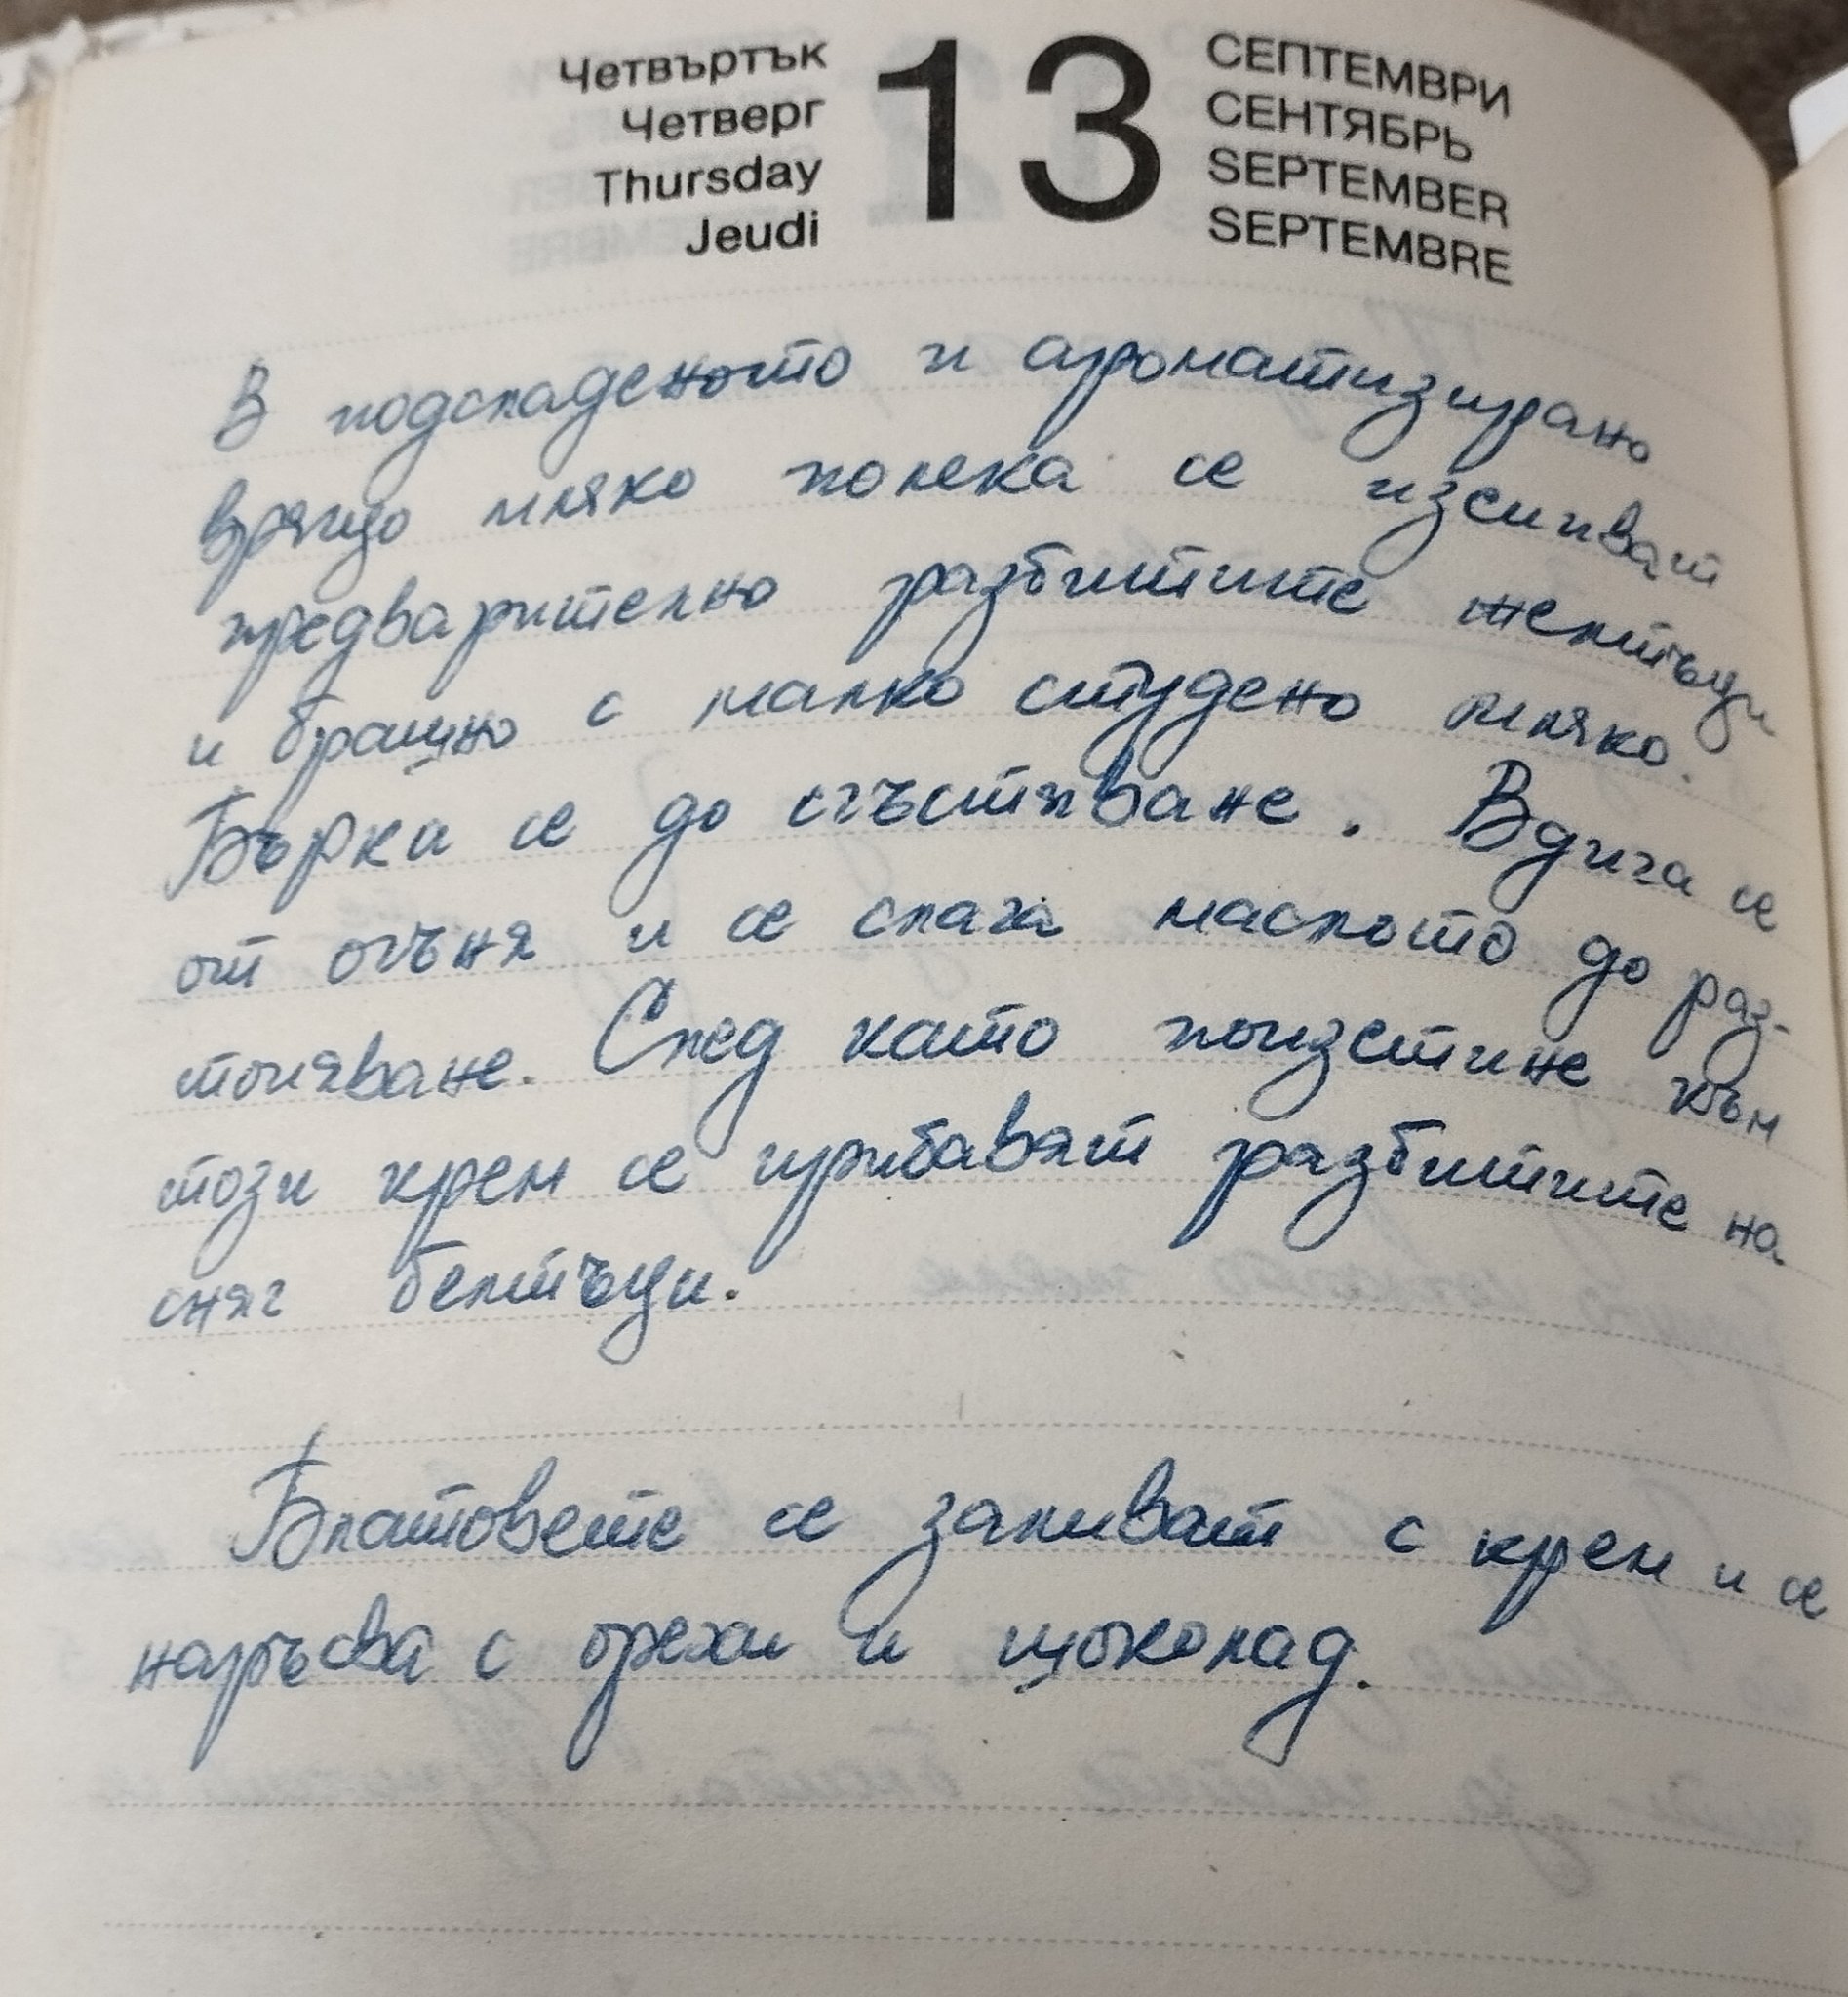 Четвъртък
Четверг
Thursday
Jeudi
13
СЕПТЕМВРИ
СЕНТЯБРЬ
SEPTEMBER
SEPTEMBRE
В подсладеното и ароматизирано
врящо мляко полека се изсипват
предварително разбитите жълтъци
и брашно с малко студено мляко.
Бърка се до сгъстяване. Вдига се
от огъня и се слага маслото до раз-
топяване. След като поизстине към
този крем се прибавят разбитите на
сняг белтъци.
Блатовете се заливат с крем и се
наръсва с орехи и шоколад.